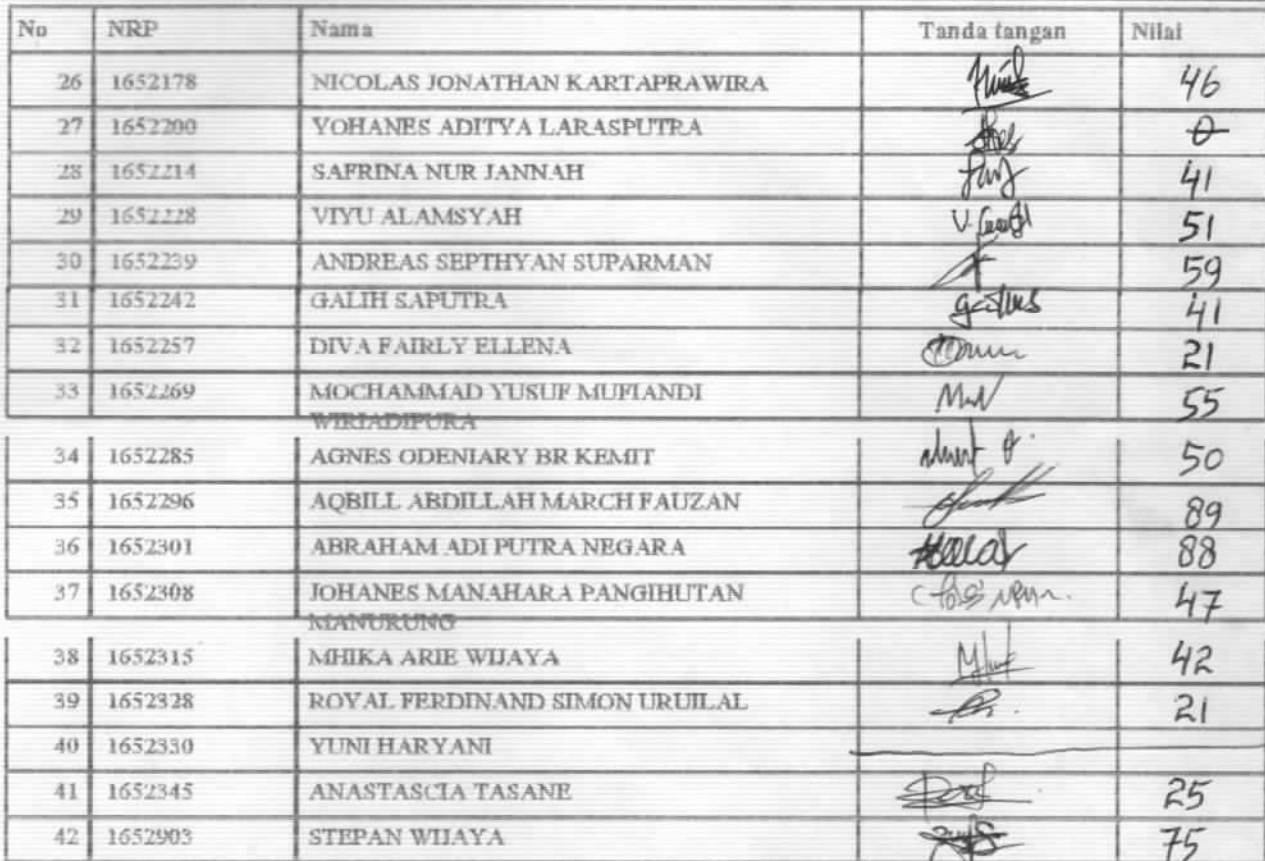 No NRP Nama Tanda tangan Nilai
26 1652178 NICOLAS JONATHAN KARTAPRAWIRA 46
27 1652200 YOHANES ADITYA LARASPUTRA 0
28 1652214 SAFRINA NUR JANNAH 41
29 1652228 VIYU ALAMSYAH 51
30 1652239 ANDREAS SEPTHYAN SUPARMAN 59
31 1652242 GALIH SAPUTRA 41
32 1652257 DIVA FAIRLY ELLENA 21
33 1652269 MOCHAMMAD YUSUF MUFIANDI 55
WIRIADIPURA
34 1652285 AGNES ODENIARY BR KEMIT 50
35 1652296 AQBILL ABDILLAH MARCH FAUZAN 89
36 1652301 ABRAHAM ADI PUTRA NEGARA 88
37 1652308 JOHANES MANAHARA PANGIHUTAN 47
MANURUNG
38 1652315 MHIKA ARIE WIJAYA 42
39 1652328 ROYAL FERDINAND SIMON URUILAL 21
40 1652330 YUNI HARYANI
41 1652345 ANASTASCIA TASANE 25
42 1652903 STEPAN WIJAYA 75